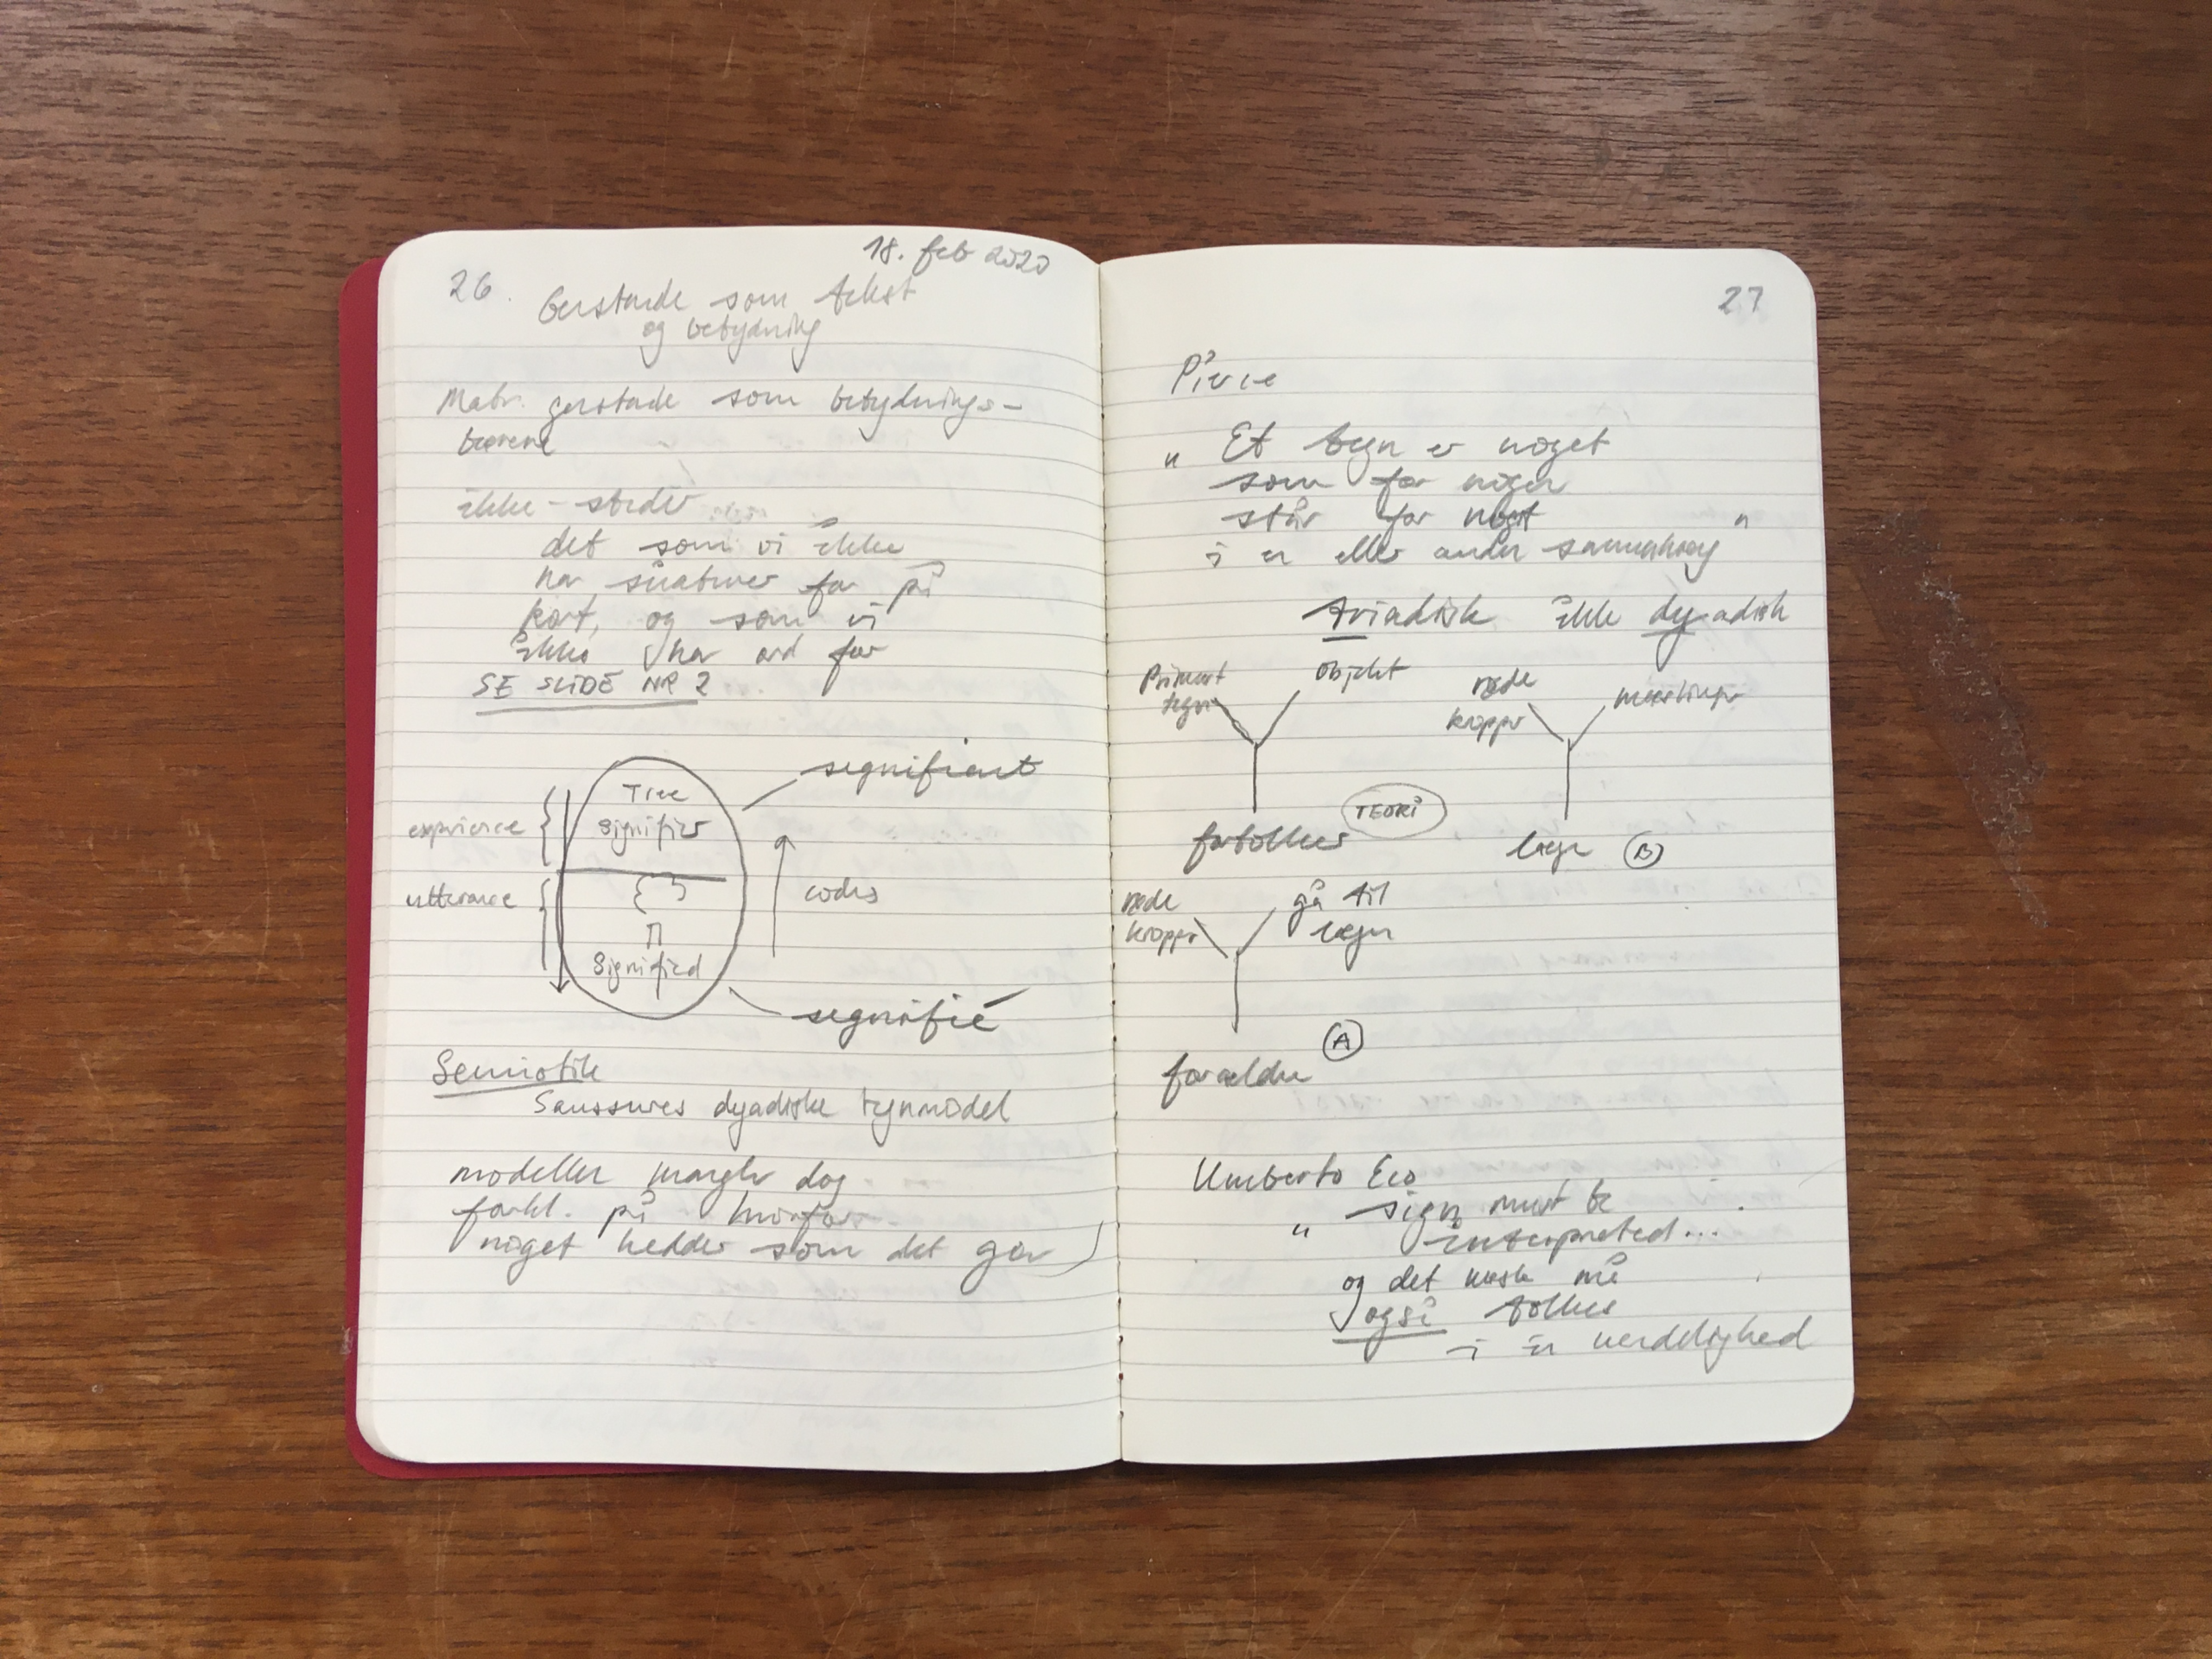 18. feb 2020
26.
Genstande som tekst
og betydning
Matr. genstande som betydnings-
bærere
ikke-steder
det som vi ikke
har signaturer for på
kort, og som vi
ikke har ord for
SE SLIDE NR 2
signifiant
Tree
experience
Signifier
utterance
codes
Signified
signifié
Semiotik
Saussures dyadiske tegnmodel
modeller mangler dog
forkl. på hvorfor
noget hedder som det gør
27
Pierce
" Et tegn er noget
som for nogen
står for noget "
i en eller anden sammenhæng
triadisk ikke dyadisk
Primært
tegn
objekt
røde
knopper
mæslinger
TEORI
fortolker
læge
B
røde
knopper
gå til
lægen
A
forældre
Umberto Eco
" sign must be
interpreted...
og det næste må
også tolkes
i en uendelighed